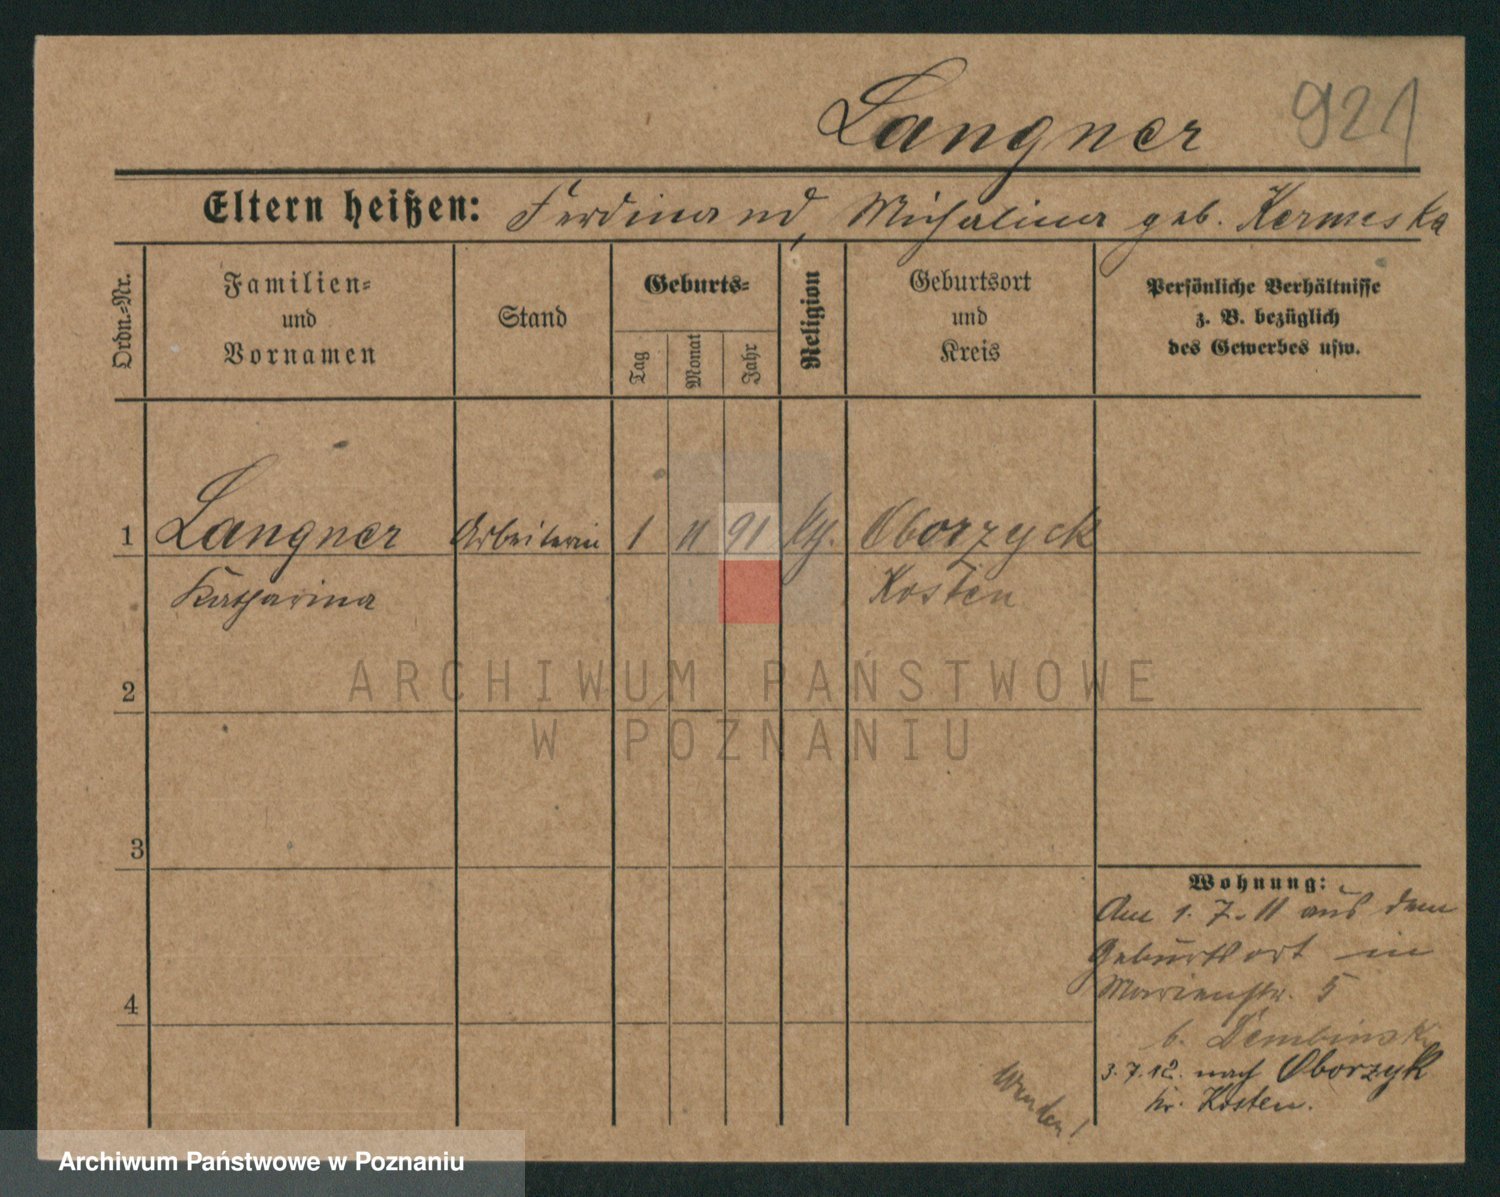 Langner 921
Eltern heißen: Ferdinand, Michalina geb. Kermeska
Ordn.-Nr.
Familien-
und
Vornamen
Stand
Geburts-
Tag
Monat
Jahr
Religion
Geburtsort
und
Kreis
Persönliche Verhältnisse
z. B. bezüglich
des Gewerbes usw.
1 Langner Arbeiterin 1 11 91 kth. Oborzyck
Katharina Kosten
2
3
4
Wohnung:
Am 1. 7. 11 aus dem
Geburtsort in
Marienstr. 5
b. Dembinski
3. 7. 12. nach Oborzyk
kr. Kosten.
Wenden!
ARCHIWUM PAŃSTWOWE
W POZNANIU
Archiwum Państwowe w Poznaniu